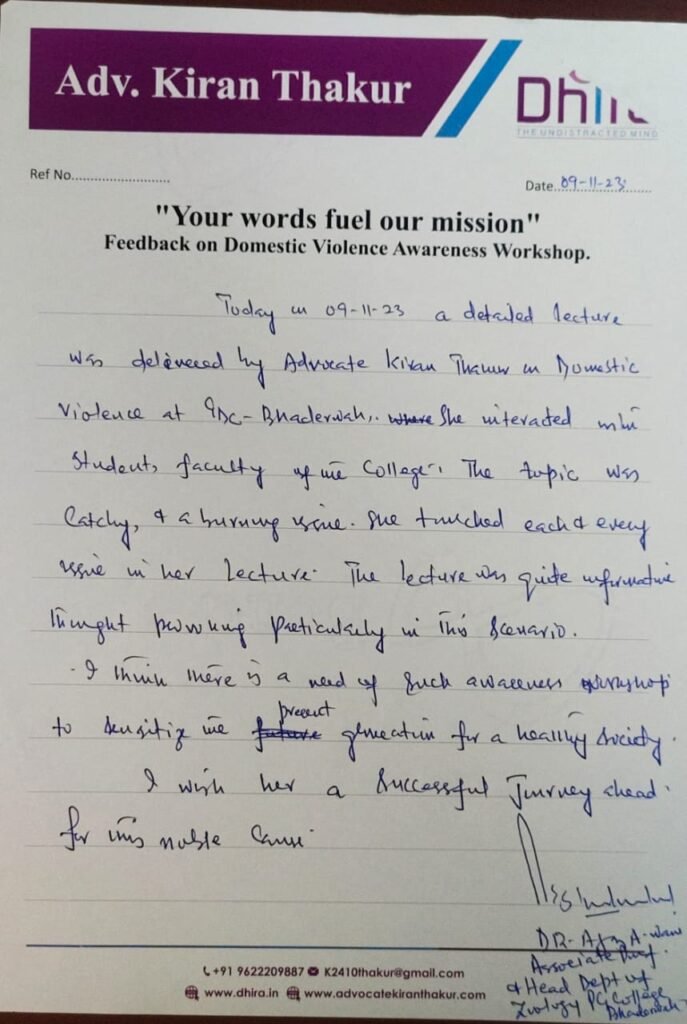 Adv. Kiran Thakur
Dhira
THE UNDISTRACTED MIND
Ref No..........................
Date..09-11-23........
"Your words fuel our mission"
Feedback on Domestic Violence Awareness Workshop.
Today on 09-11-23 a detailed lecture
was delivered by Advocate Kiran Thakur on Domestic
Violence at GDC-Bhaderwah, where She interacted with
Students, faculty of the College. The topic was
Catchy, & a burning issue. She touched each & every
issue in her Lecture. The lecture was quite informative
thought provoking particularly in this Scenario.
I think there is a need of such awareness workshop
to sensitize the future present generation for a healthy society.
I wish her a Successful Journey ahead
for this noble Cause.
DR. A. Wani
Associate Prof.
& Head Dept of
Zoology PG College
Bhaderwah
+91 9622209887 K2410thakur@gmail.com
www.dhira.in www.advocatekiranthakur.com